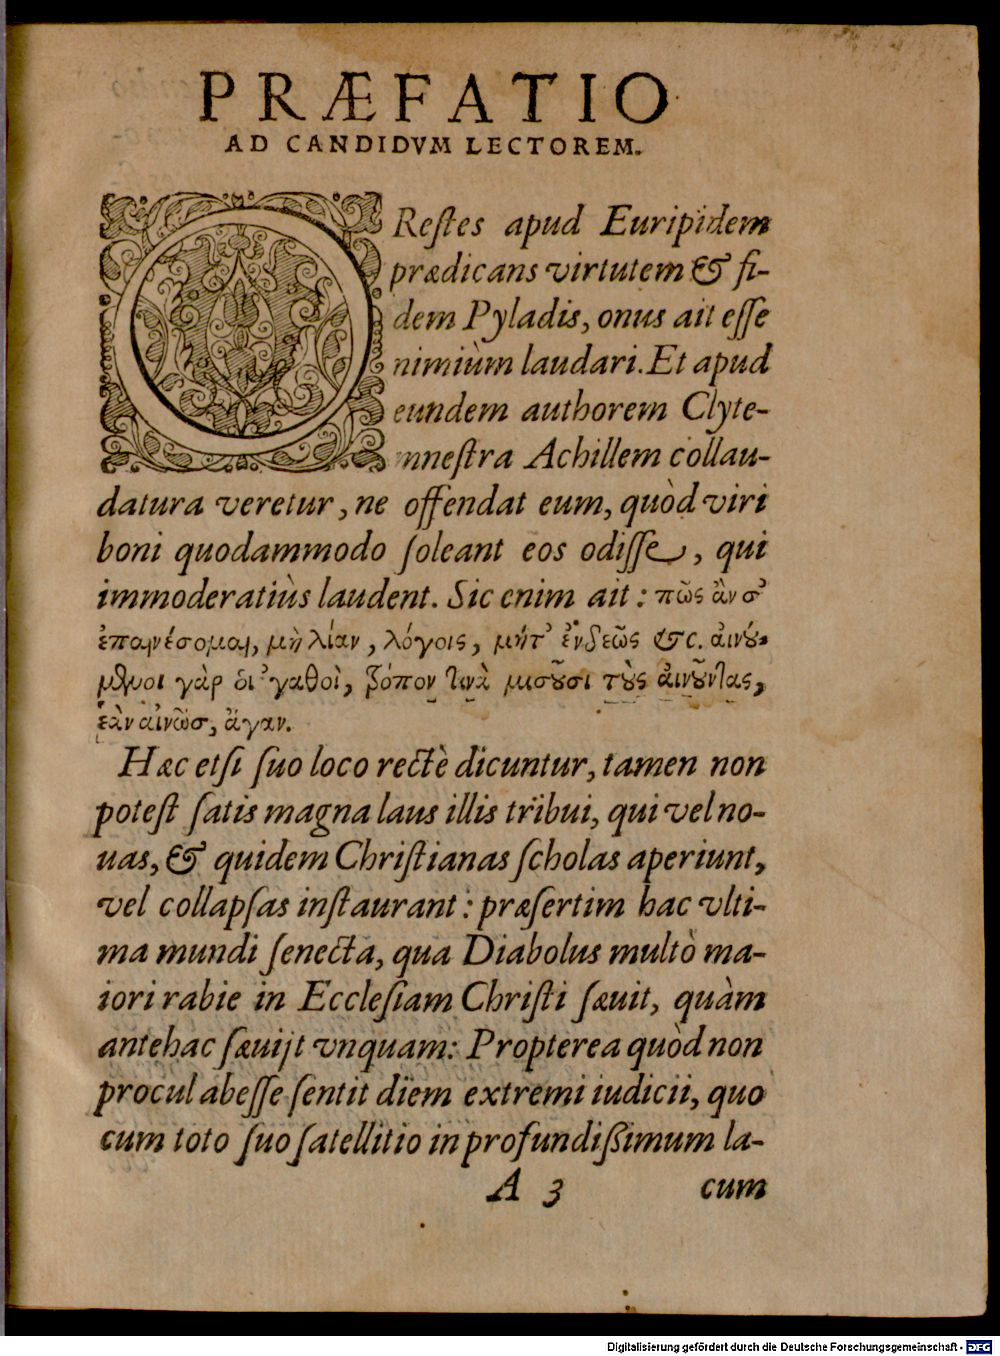 PRÆFATIO
AD CANDIDVM LECTOREM.
ORestes apud Euripidem
prædicans virtutem & fi-
dem Pyladis, onus ait eſſe
nimiùm laudari. Et apud
eundem authorem Clyte-
mneſtra Achillem collau-
datura veretur, ne offendat eum, quòd viri
boni quodammodo ſoleant eos odiſſe, qui
immoderatiùs laudent. Sic enim ait: πῶς ἂν σ'
ἐπαινέσομαι, μὴ λίαν, λόγοις, μήτ' ἐνδεῶς &c. αἰνού-
μενοι γὰρ οἱ 'γαθοὶ, τρόπον τινὰ μισοῦσι τοὺς αἰνοῦντας,
ἐὰν αἰνῶσ, ἄγαν.
Hæc etſi ſuo loco rectè dicuntur, tamen non
poteſt ſatis magna laus illis tribui, qui vel no-
uas, & quidem Chriſtianas ſcholas aperiunt,
vel collapſas inſtaurant: præſertim hac vlti-
ma mundi ſenecta, qua Diabolus multò ma-
iori rabie in Eccleſiam Chriſti ſæuit, quàm
antehac ſæuijt vnquam: Propterea quòd non
procul abeſſe ſentit diem extremi iudicii, quo
cum toto ſuo ſatellitio in profundiſſimum la-
A 3 cum
Digitalisierung gefördert durch die Deutsche Forschungsgemeinschaft - DFG